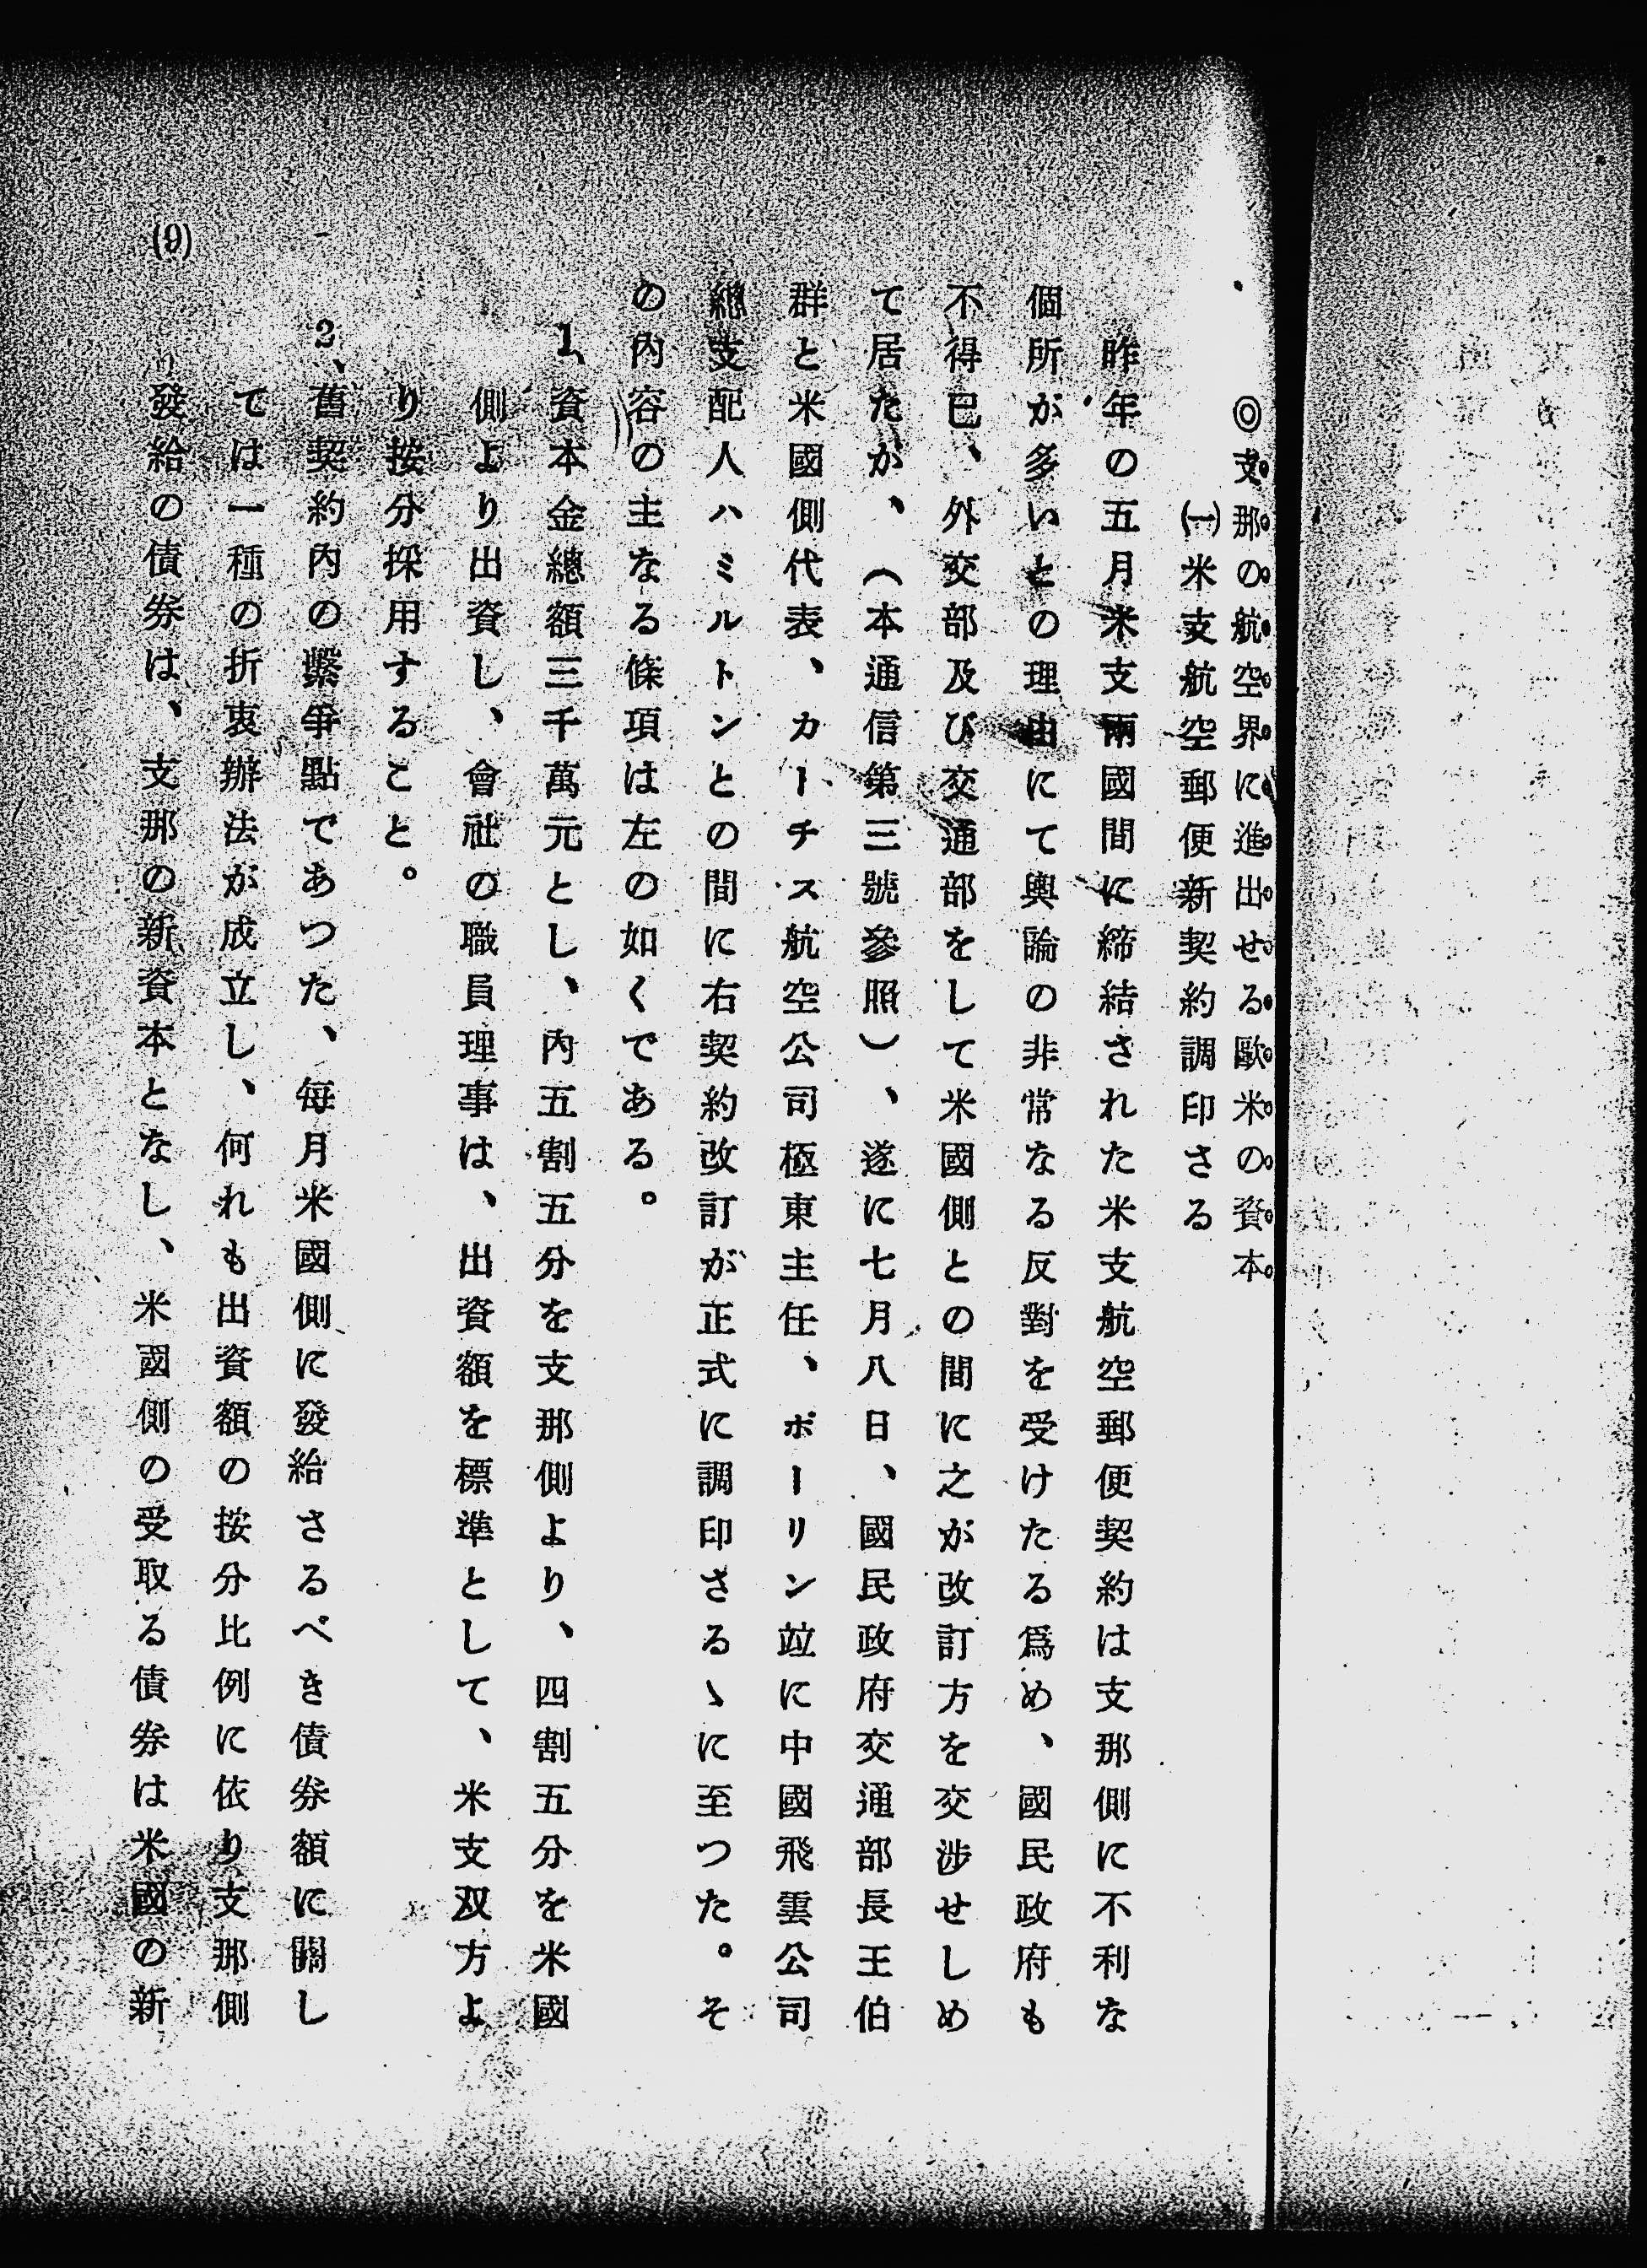 ◎支那の航空界に進出せる歐米の資本
(一)米支航空郵便新契約調印さる
昨年の五月米支兩國間に締結された米支航空郵便契約は支那側に不利な
個所が多いとの理由にて輿論の非常なる反對を受けたる爲め、國民政府も
不得已、外交部及び交通部をして米國側との間に之が改訂方を交渉せしめ
て居たが、(本通信第三號參照)、遂に七月八日、國民政府交通部長王伯
群と米國側代表、カーチス航空公司極東主任、ポーリン竝に中國飛雲公司
總支配人ハミルトンとの間に右契約改訂が正式に調印さるゝに至つた。そ
の內容の主なる條項は左の如くである。
1、資本金總額三千萬元とし、內五割五分を支那側より、四割五分を米國
側より出資し、會社の職員理事は、出資額を標準として、米支双方よ
り按分採用すること。
2、舊契約內の繫爭點であつた、每月米國側に發給さるべき債券額に關し
ては一種の折衷辦法が成立し、何れも出資額の按分比例に依り支那側
發給の債券は、支那の新資本となし、米國側の受取る債券は米國の新
(9)